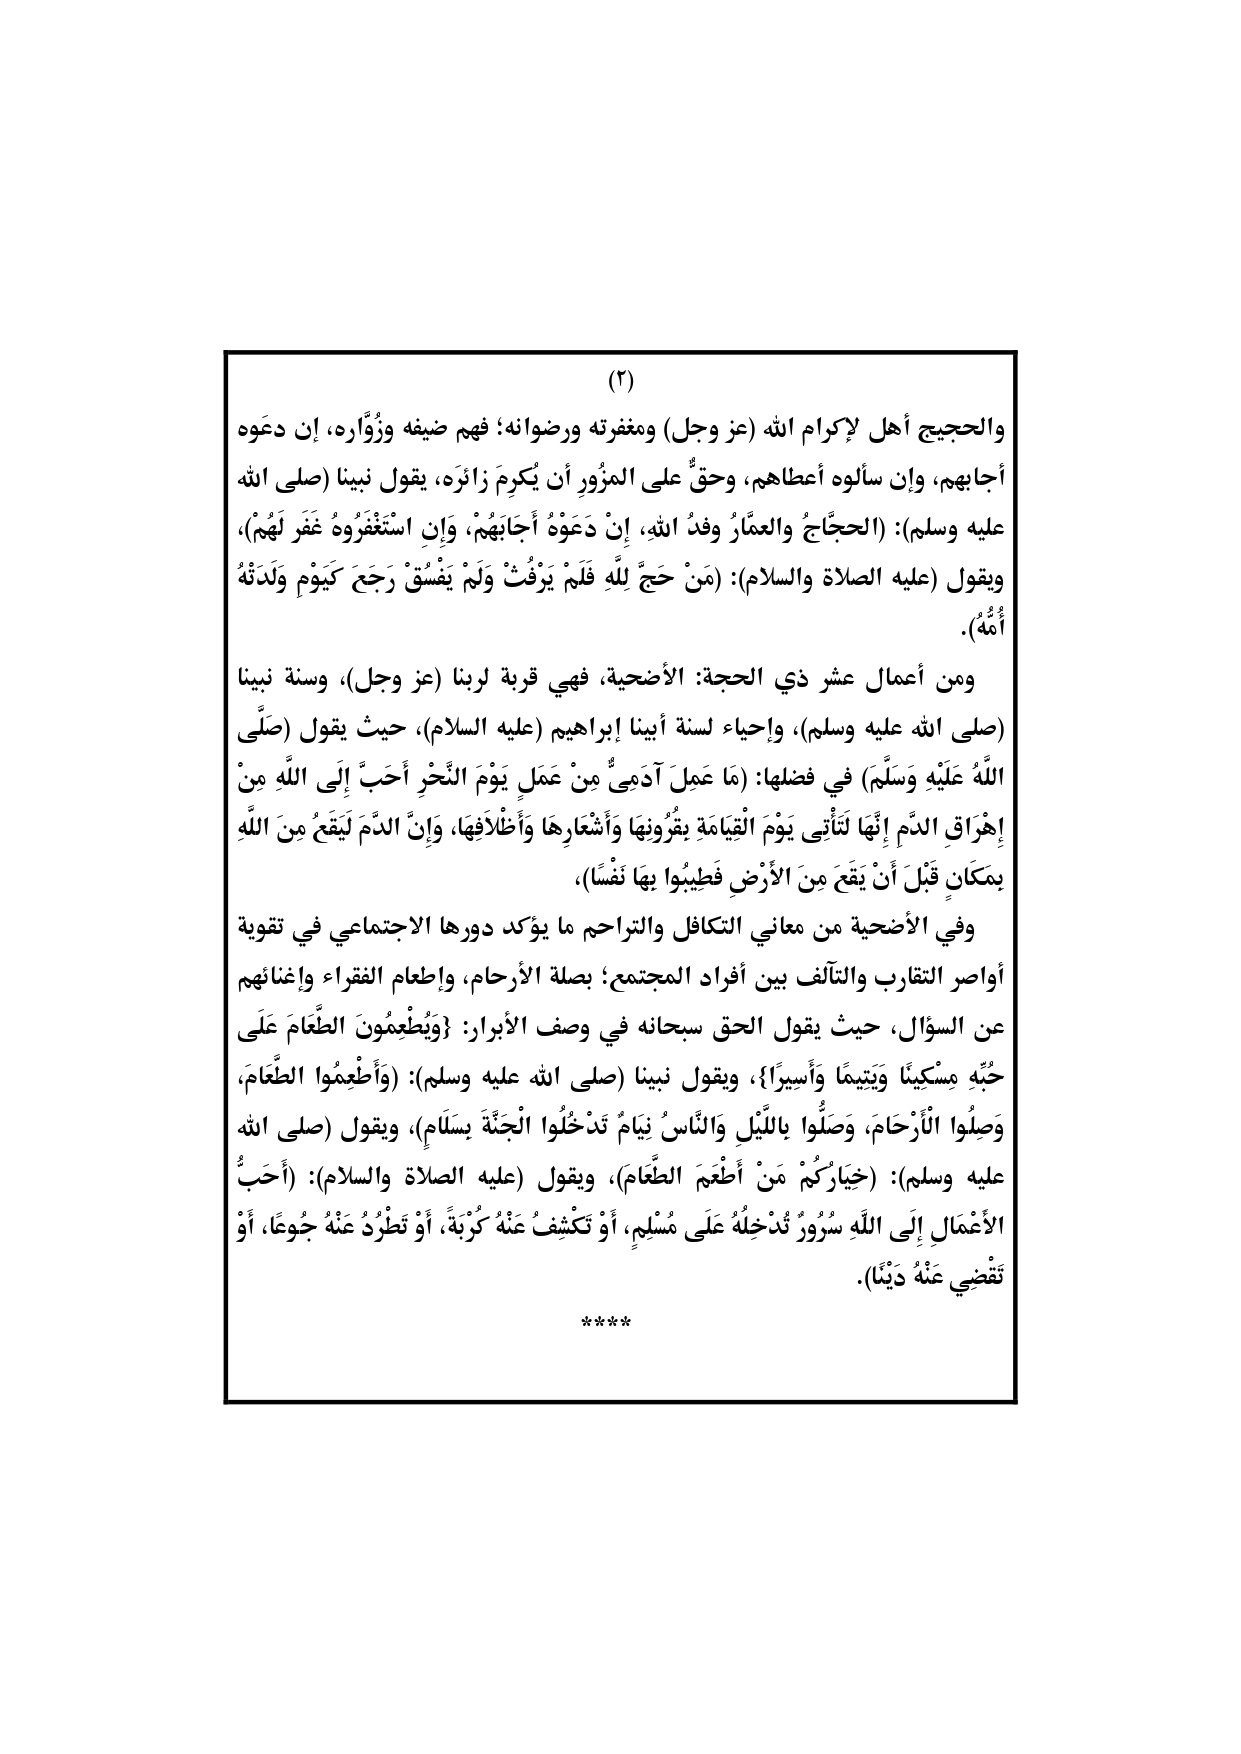 (٢)
والحجيج أهل لإكرام الله (عز وجل) ومغفرته ورضوانه؛ فهم ضيفه وزُوَّاره، إن دعَوه
أجابهم، وإن سألوه أعطاهم، وحقٌّ على المزُورِ أن يُكرِمَ زائرَه، يقول نبينا (صلى الله
عليه وسلم): (الحجَّاجُ والعمَّارُ وفدُ اللهِ، إِنْ دَعَوْهُ أَجَابَهُمْ، وَإِنِ اسْتَغْفَرُوهُ غَفَر لَهُمْ)،
ويقول (عليه الصلاة والسلام): (مَنْ حَجَّ لِلَّهِ فَلَمْ يَرْفُثْ وَلَمْ يَفْسُقْ رَجَعَ كَيَوْمِ وَلَدَتْهُ
أُمُّهُ).
ومن أعمال عشر ذي الحجة: الأضحية، فهي قربة لربنا (عز وجل)، وسنة نبينا
(صلى الله عليه وسلم)، وإحياء لسنة أبينا إبراهيم (عليه السلام)، حيث يقول (صَلَّى
اللَّهُ عَلَيْهِ وَسَلَّمَ) في فضلها: (مَا عَمِلَ آدَمِىٌّ مِنْ عَمَلٍ يَوْمَ النَّحْرِ أَحَبَّ إِلَى اللَّهِ مِنْ
إِهْرَاقِ الدَّمِ إِنَّهَا لَتَأْتِى يَوْمَ الْقِيَامَةِ بِقُرُونِهَا وَأَشْعَارِهَا وَأَظْلاَفِهَا، وَإِنَّ الدَّمَ لَيَقَعُ مِنَ اللَّهِ
بِمَكَانٍ قَبْلَ أَنْ يَقَعَ مِنَ الأَرْضِ فَطِيبُوا بِهَا نَفْسًا)،
وفي الأضحية من معاني التكافل والتراحم ما يؤكد دورها الاجتماعي في تقوية
أواصر التقارب والتآلف بين أفراد المجتمع؛ بصلة الأرحام، وإطعام الفقراء وإغنائهم
عن السؤال، حيث يقول الحق سبحانه في وصف الأبرار: {وَيُطْعِمُونَ الطَّعَامَ عَلَى
حُبِّهِ مِسْكِينًا وَيَتِيمًا وَأَسِيرًا}، ويقول نبينا (صلى الله عليه وسلم): (وَأَطْعِمُوا الطَّعَامَ،
وَصِلُوا الْأَرْحَامَ، وَصَلُّوا بِاللَّيْلِ وَالنَّاسُ نِيَامٌ تَدْخُلُوا الْجَنَّةَ بِسَلَامٍ)، ويقول (صلى الله
عليه وسلم): (خِيَارُكُمْ مَنْ أَطْعَمَ الطَّعَامَ)، ويقول (عليه الصلاة والسلام): (أَحَبُّ
الأَعْمَالِ إِلَى اللَّهِ سُرُورٌ تُدْخِلُهُ عَلَى مُسْلِمٍ، أَوْ تَكْشِفُ عَنْهُ كُرْبَةً، أَوْ تَطْرُدُ عَنْهُ جُوعًا، أَوْ
تَقْضِي عَنْهُ دَيْنًا).
****